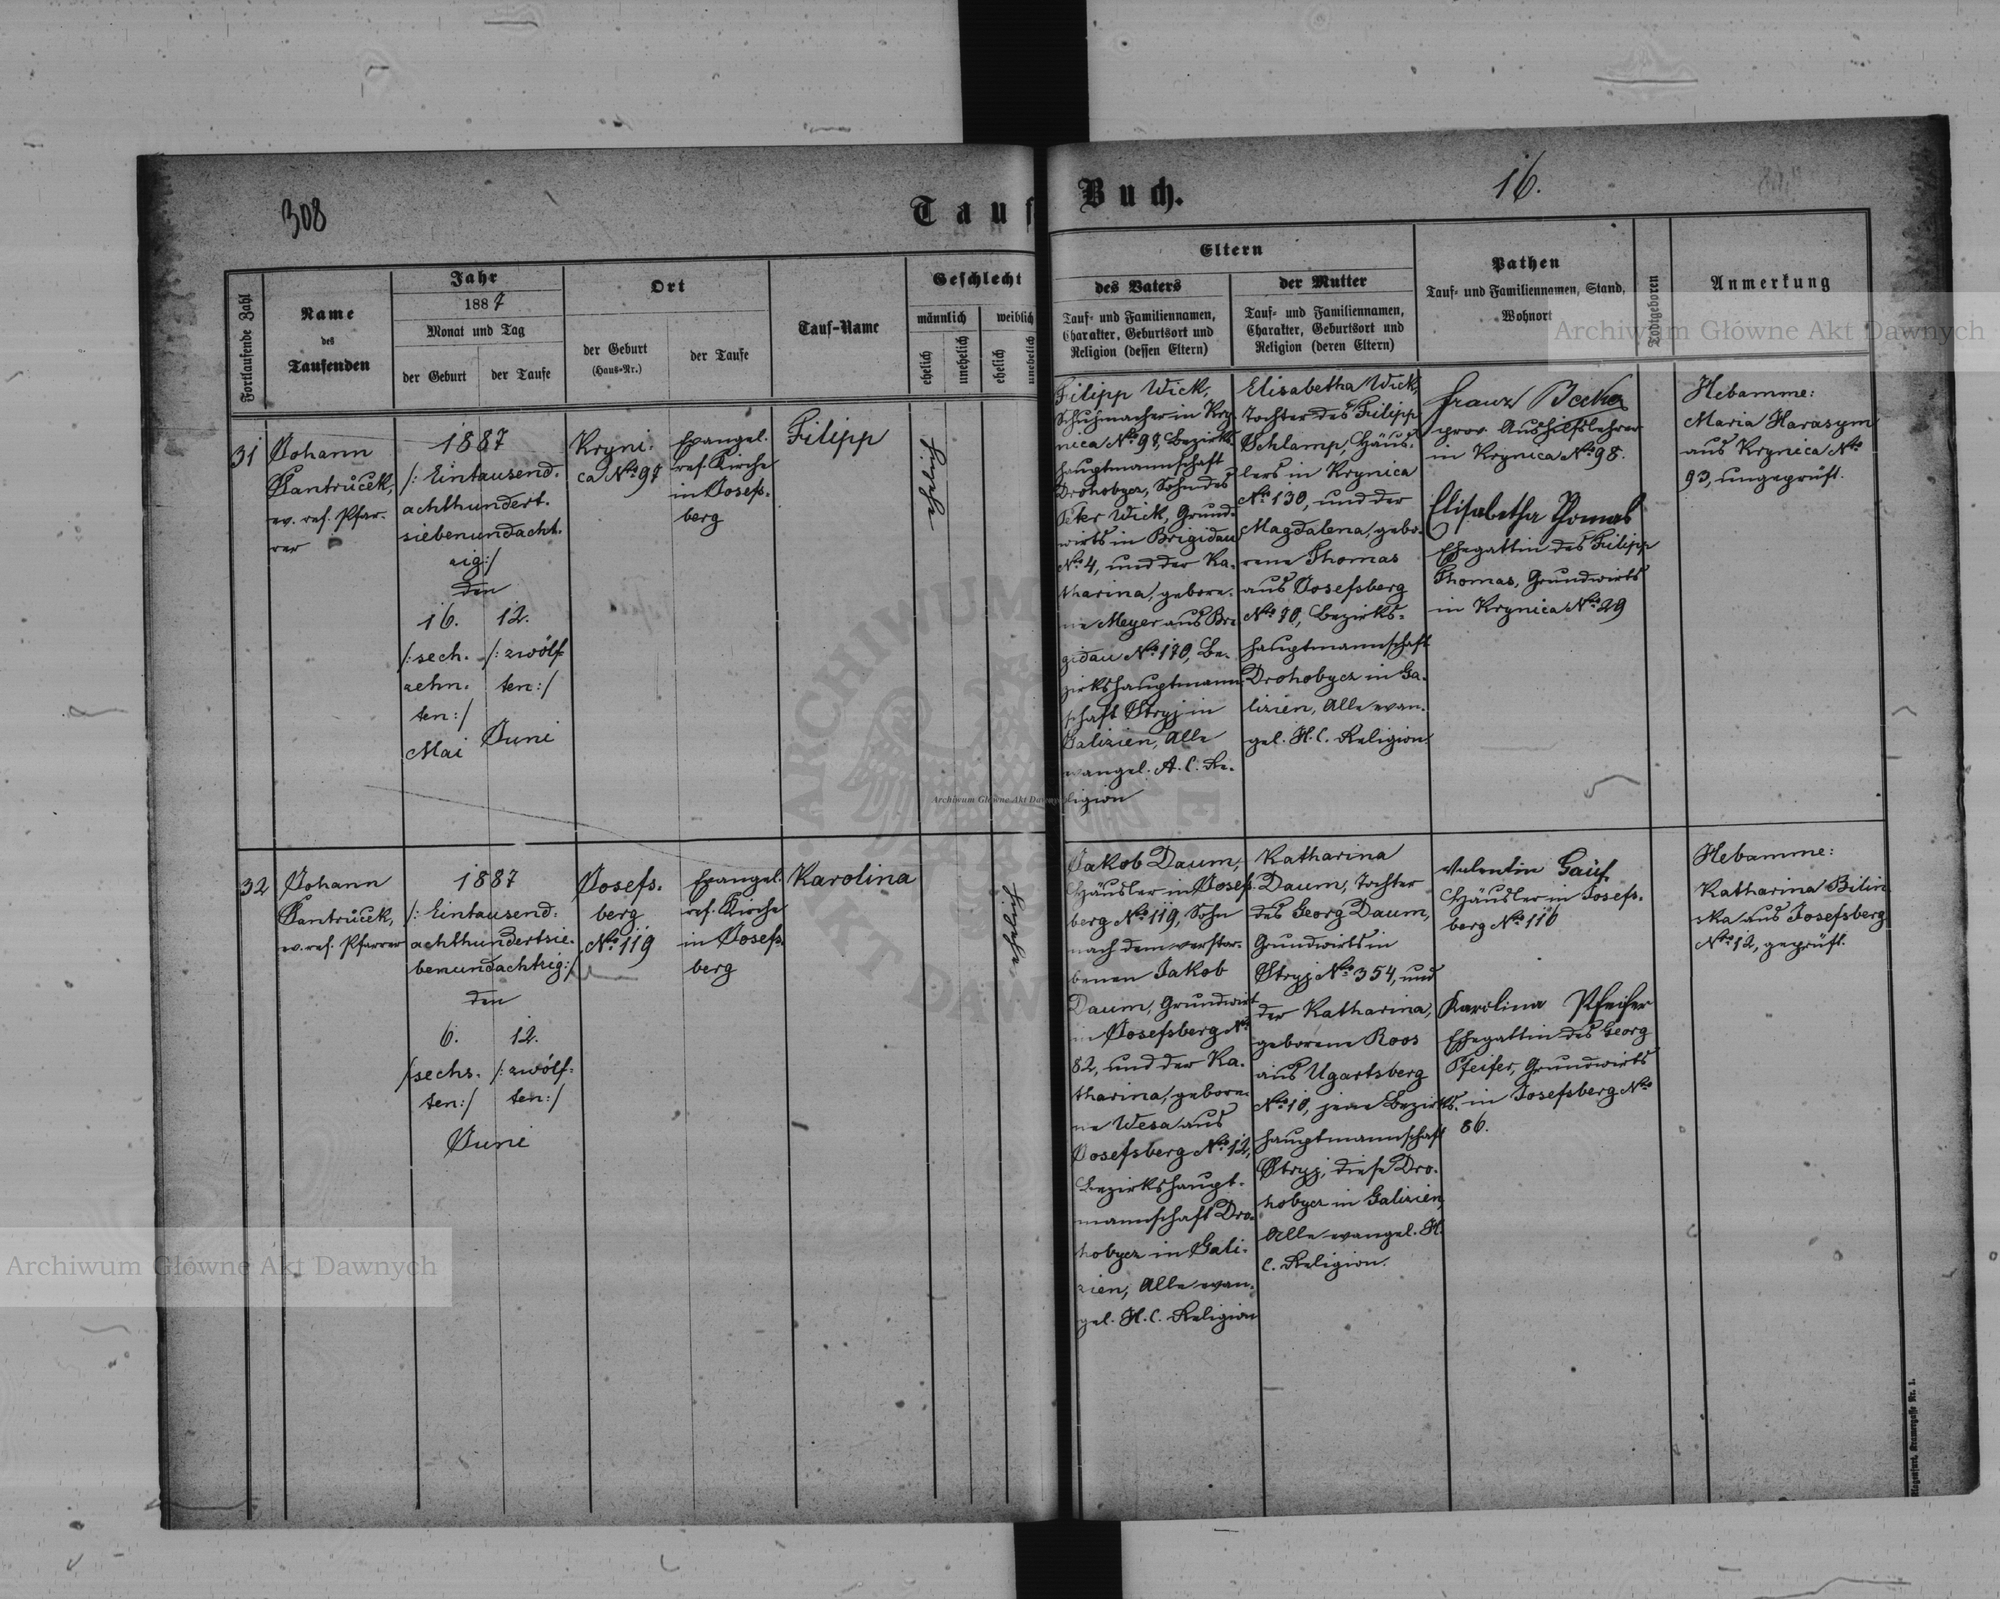 308
Tauf
Buch.
16.
Fortlaufende Zahl
Name
des
Taufenden
Jahr
1887
Monat und Tag
der Geburt
der Taufe
Ort
der Geburt
(Haus-Nr.)
der Taufe
Tauf-Name
Geschlecht
männlich
weiblich
ehelich
unehelich
ehelich
unehelich
Eltern
des Vaters
Tauf- und Familiennamen,
Charakter, Geburtsort und
Religion (dessen Eltern)
der Mutter
Tauf- und Familiennamen,
Charakter, Geburtsort und
Religion (deren Eltern)
Pathen
Tauf- und Familiennamen, Stand,
Wohnort
Todtgeboren
Anmerkung
31
Johann
Jantrůcek,
ev. ref. Pfar-
rer
1887
/: Eintausend-
achthundert-
siebenundacht-
zig:/
den
16.
/: sech-
zehn-
ten:/
Mai
12.
/: zwölf-
ten:/
Juni
Kryni-
ca No 98
Evangel.
ref. Kirche
in Josefs-
berg
Filipp
ehelich
Filipp Wick,
Schuhmacher in Kry-
nica No 98, Bezirks-
hauptmannschaft
Drohobycz, Sohn des
Peter Wick, Grund-
wirts in Brigidau
No 4, und der Ka-
tharina, gebore-
ne Meyer aus Bri-
gidau No 170, Be-
zirkshauptmann-
schaft Stryj in
Galizien, Alle
evangel. A. C. Re-
ligion
Elisabetha Wick,
Tochter des Filipp
Schlamp, Häus-
lers in Krynica
No 130, und der
Magdalena, gebo-
rene Thomas
aus Josefsberg
No 70, Bezirks-
hauptmannschaft
Drohobycz in Ga-
lizien, Alle evan-
gel. H. C. Religion.
Franz Becker
prov. Aushilfslehrer
in Krynica No 98.
Elisabetha Thomas
Ehegattin des Filipp
Thomas, Grundwirts
in Krynica No 29
Hebamme:
Maria Harasym
aus Krynica No
93, ungeprüft.
32
Johann
Jantrůcek,
ev. ref. Pfarrer
1887
/: Eintausend-
achthundertsie-
benundachtzig:/
den
6.
/: sechs-
ten:/
12.
/: zwölf-
ten:/
Juni
Josefs-
berg
No 119
Evangel.
ref. Kirche
in Josefs-
berg
Karolina
ehelich
Jakob Daum,
Häusler in Josefs-
berg No 119, Sohn
nach dem verstor-
benen Jakob
Daum, Grundwirt
in Josefsberg No
82, und der Ka-
tharina, gebore-
ne Wesa aus
Josefsberg No 12,
Bezirkshaupt-
mannschaft Dro-
hobycz in Gali-
zien, Alle evan-
gel. H. C. Religion
Katharina
Daum, Tochter
des Georg Daum,
Grundwirts in
Stryj No 354, und
der Katharina,
geborene Roos
aus Ugartsberg
No 10, jene Bezirks-
hauptmannschaft
Stryj, diese Dro-
hobycz in Galizien,
Alle evangel. H.
C. Religion.
Valentin
Häusler in Josefs-
berg No 116
Karolina Pfeifer
Ehegattin des Georg
Pfeifer, Grundwirts
in Josefsberg No
86.
Hebamme:
Katharina Bilin-
ska aus Josefsberg
No 12, geprüft.
Archiwum Główne Akt Dawnych
Archiwum Główne Akt Dawnych
Archiwum Główne Akt Dawnych